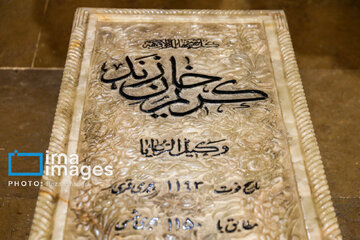 کریم خان زند
وکیل الرعایا
تاریخ فوت ۱۱۹۳ هجری قمری
مطابق با ۱۱۵۰
ima
images
PHOTO: